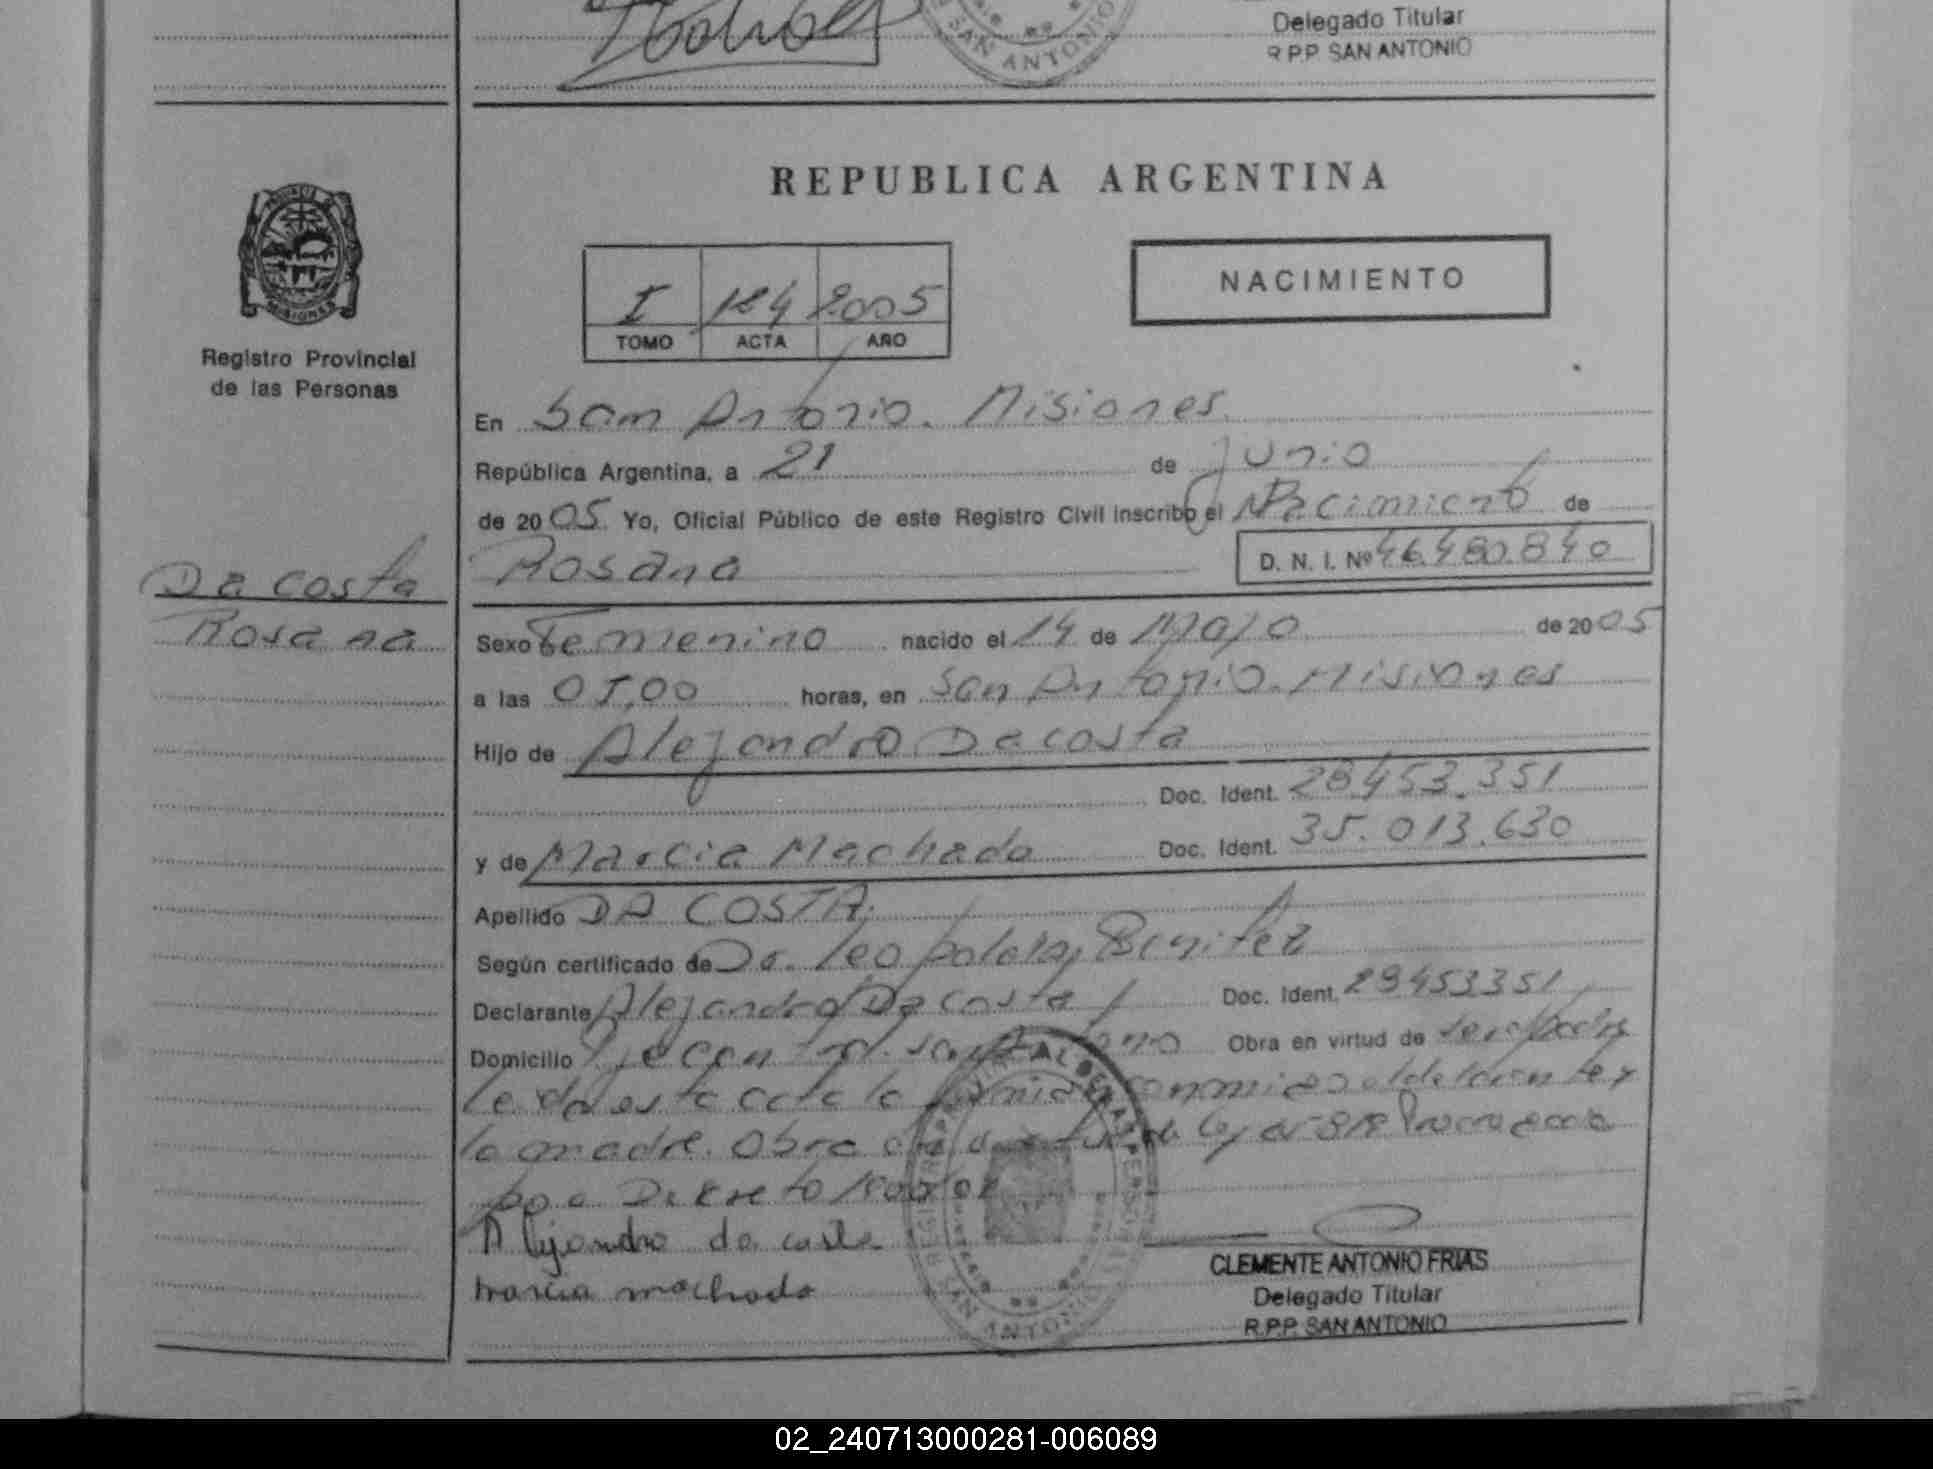 Delegado Titular
R.P.P. SAN ANTONIO
SAN ANTONIO
REPUBLICA ARGENTINA
NACIMIENTO
I 124 2005
TOMO ACTA AÑO
MISIONES
Registro Provincial
de las Personas
En San Antonio. Misiones
República Argentina, a 21 de Junio
de 2005. Yo, Oficial Público de este Registro Civil inscribo el Nacimiento de
Rosana D. N. I. Nº 46.480.840
Da costa
Rosana
Sexo Femenino nacido el 14 de Mayo de 2005
a las 05,00 horas, en San Antonio. Misiones
Hijo de Alejandro Da costa
Doc. Ident. 28.453.351
y de Marcia Machado Doc. Ident. 35.013.630
Apellido DA COSTA.
Según certificado de Dr. Leopoldo Benitez
Declarante Alejandro Da costa Doc. Ident. 28453351
Domicilio Obra en virtud de ser Padre
leida esta acta la conmigo el y
la madre. Obra
Decreto
Alejandro da costa
marcia machado
SAN ANTONIO
CLEMENTE ANTONIO FRIAS
Delegado Titular
R.P.P. SAN ANTONIO
02_240713000281-006089